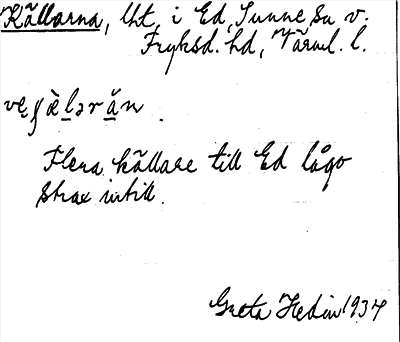 Källarna, lht, i Ed, Sunne sn v.
Fryksd. hd, Värml. l.
Flera källare till Ed lågo
strax intill.
Greta Hedin 1934